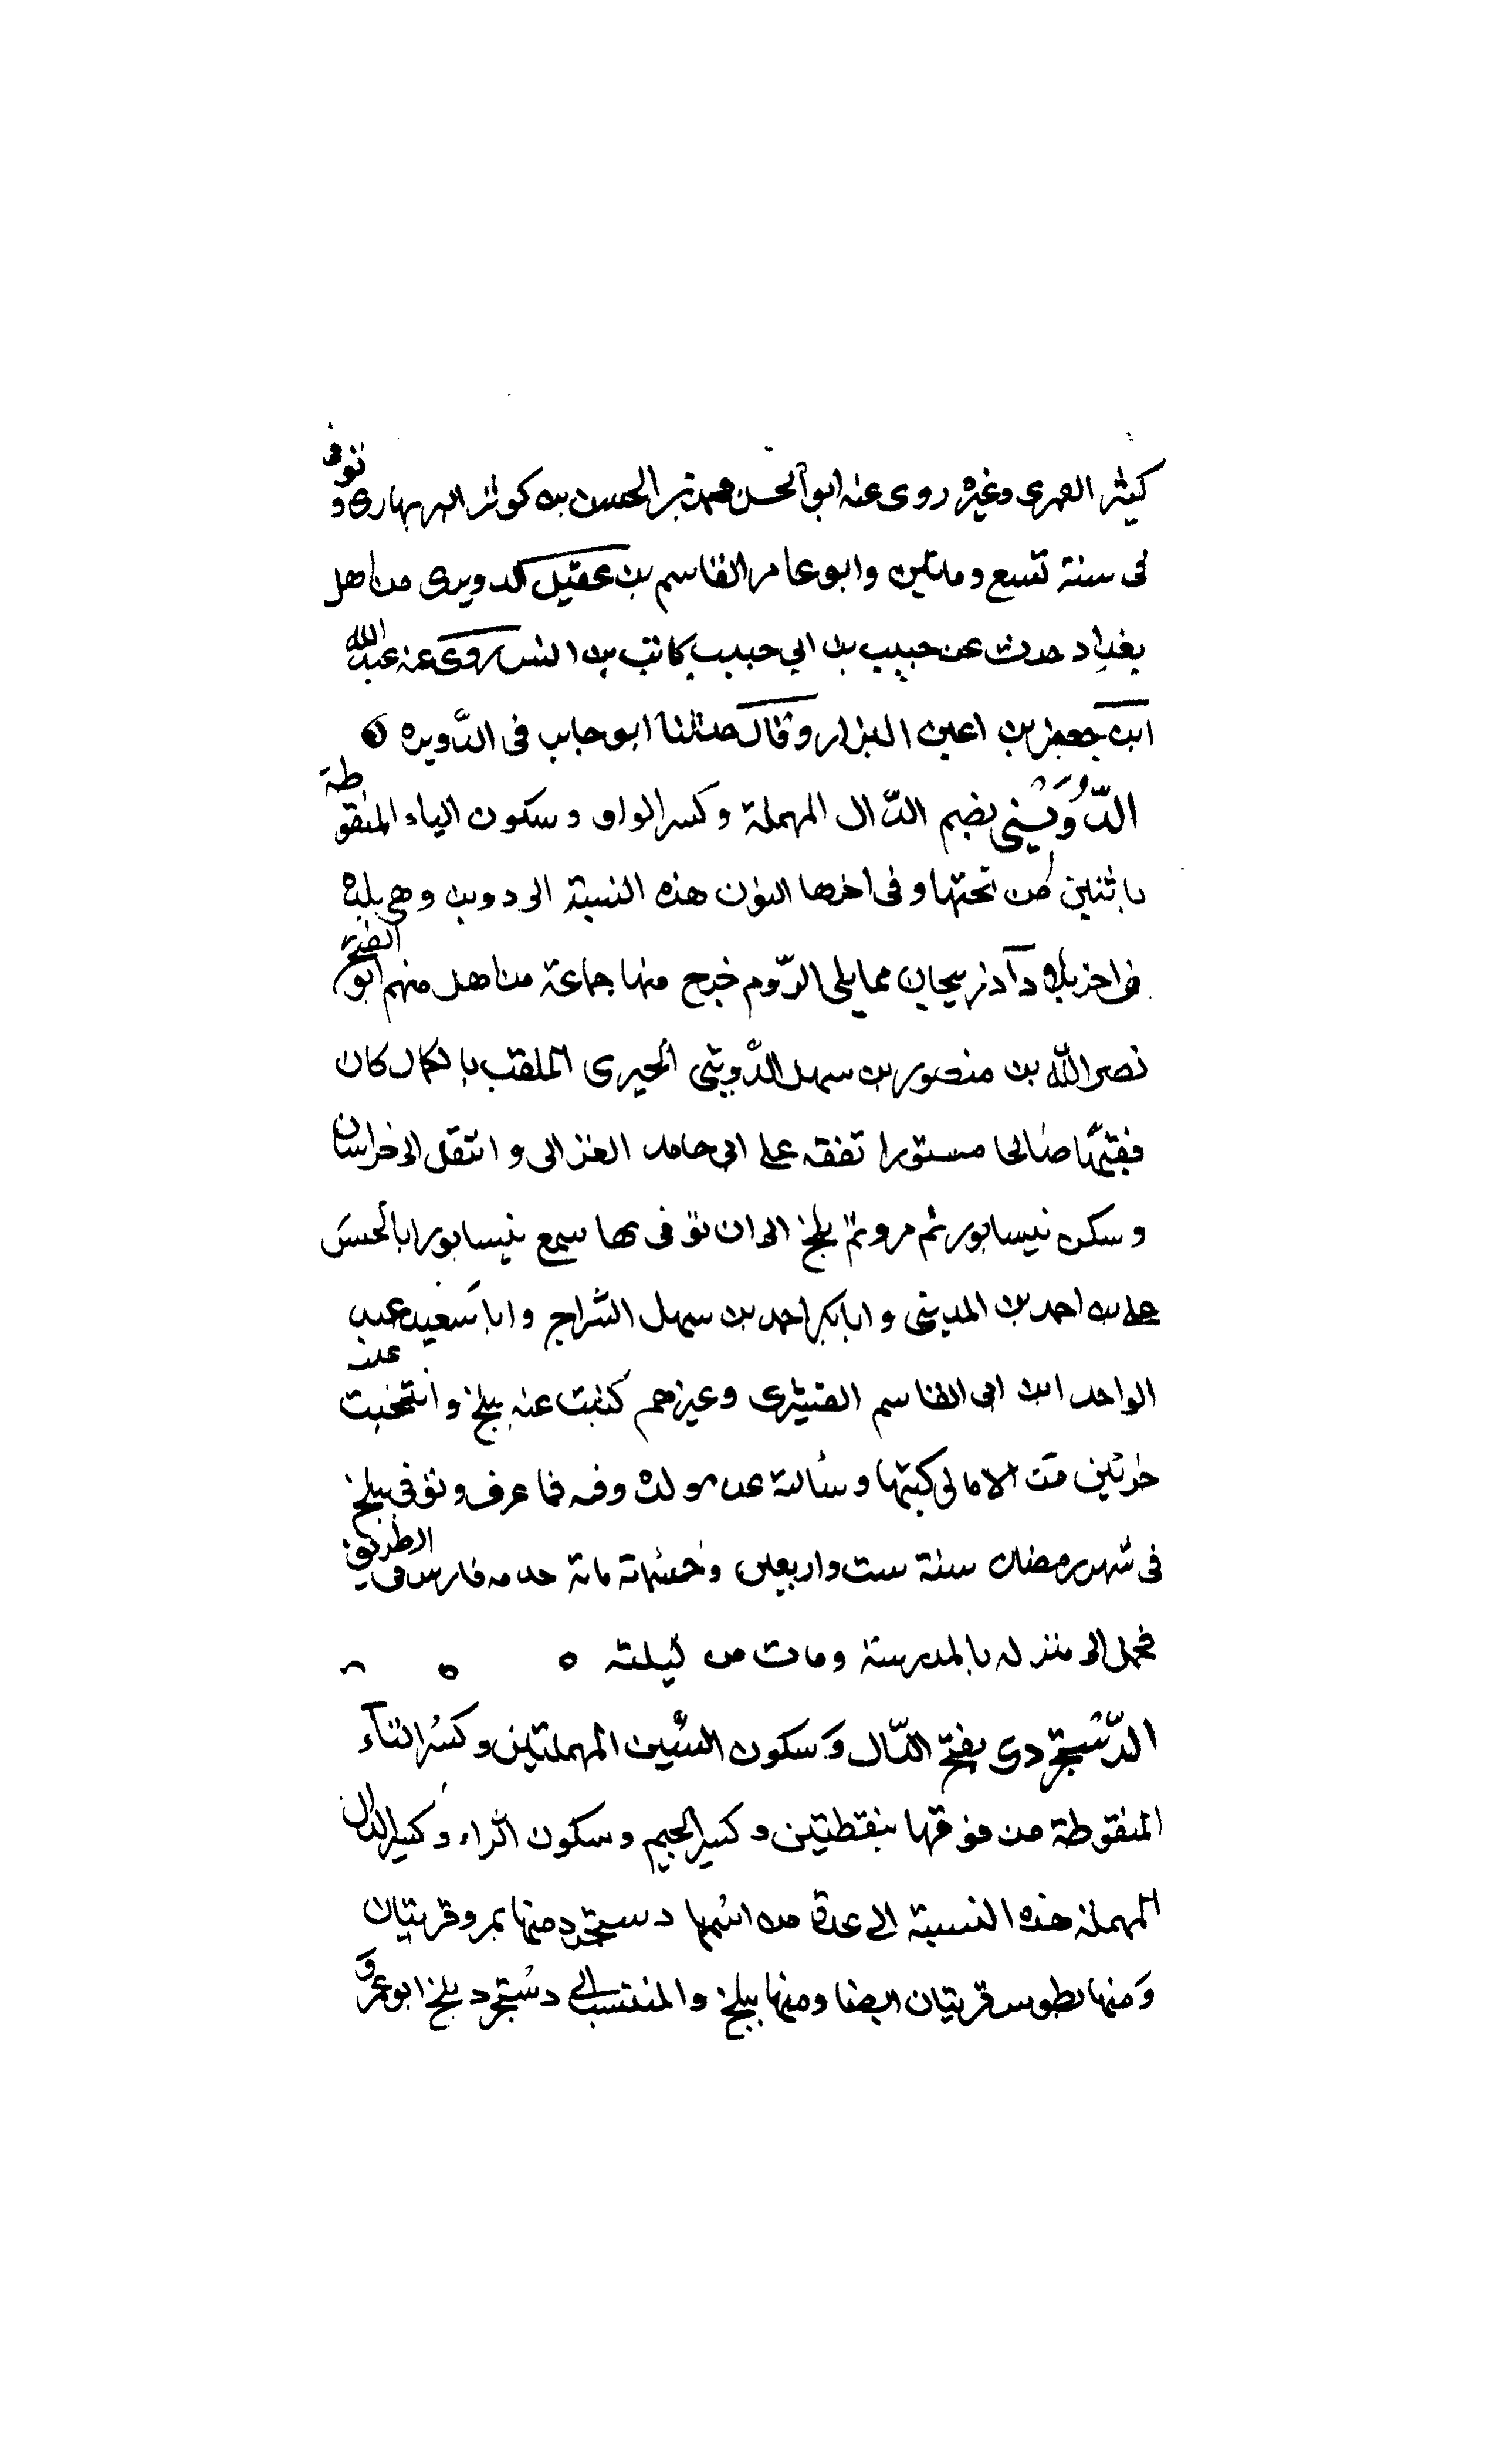 كيثر العمرى وغيره روى عنه ابو الحسن محمد بن الحسن بن كوثر البربهارى و توفى
فى سنة تسع ومايتين وابو عامر القاسم بن عقيل الدويرى من اهل
بغداد حدث عن حبيب بن ابي حبيب كاتب بن انس روى عنه عبد الله
ابن جعفر بن اعين البزار وقال حدثنا ابو حابب فى الدَّويره
الدُّوَيْنى بضم الدّال المهملة وكسر الواو وسكون الياء المنقوطة
باثنين من تحتها وفى اخرها النون هذه النسبة الى دوين وهي بلده
فى اخر بلاد آدذربيجان مما يلى الرّوم خرج منها جماعة من اهل منهم ابو الفتح
نصر الله بن منصور بن سهل الدّوينى الحيرى الملقب بالكمال كان
فقيهًا صالحا مستورا تفقه على ابى حامد الغزالى وانتقل الى خراسان
وسكن نيسابور ثم مرو ثمّ بلخ الى ان توفى بها سمع بنيسابور ابا الحسَن
على بن احمد بن المدينى وابا بكر احمد بن سهل السّراج وابا سَعيد عبد
الواحد ابن ابى القاسم القشيرى وغيرهم كتبت عنه ببلخ وانتخبت عنه
جزئين من الامالى كتبتها وسألته عن مولده وفه فما عرف وتوفى ببلخ
فى شهر رمضان سنة ست واربعين وخمسمائة مائة فارس فى الطريق
فحمل الى منزله بالمدرسة ومات من ليلته ه ه
الدّستجردى بفتح الدّال وَسكون السّين المهملتين وكسْر التآء
المنقوطة من فوقها بنقطتين وكسر الجيم وسكون الراء وكسر الدال
المهملة هذه النسبة الى عدة من اسْمها دستجرد منها بمرو قريتان
وَمنها بطوس قريتان ايضا ومنها ببلخ والمنتسب الى دسْتجرد بلخ ابو عمرو